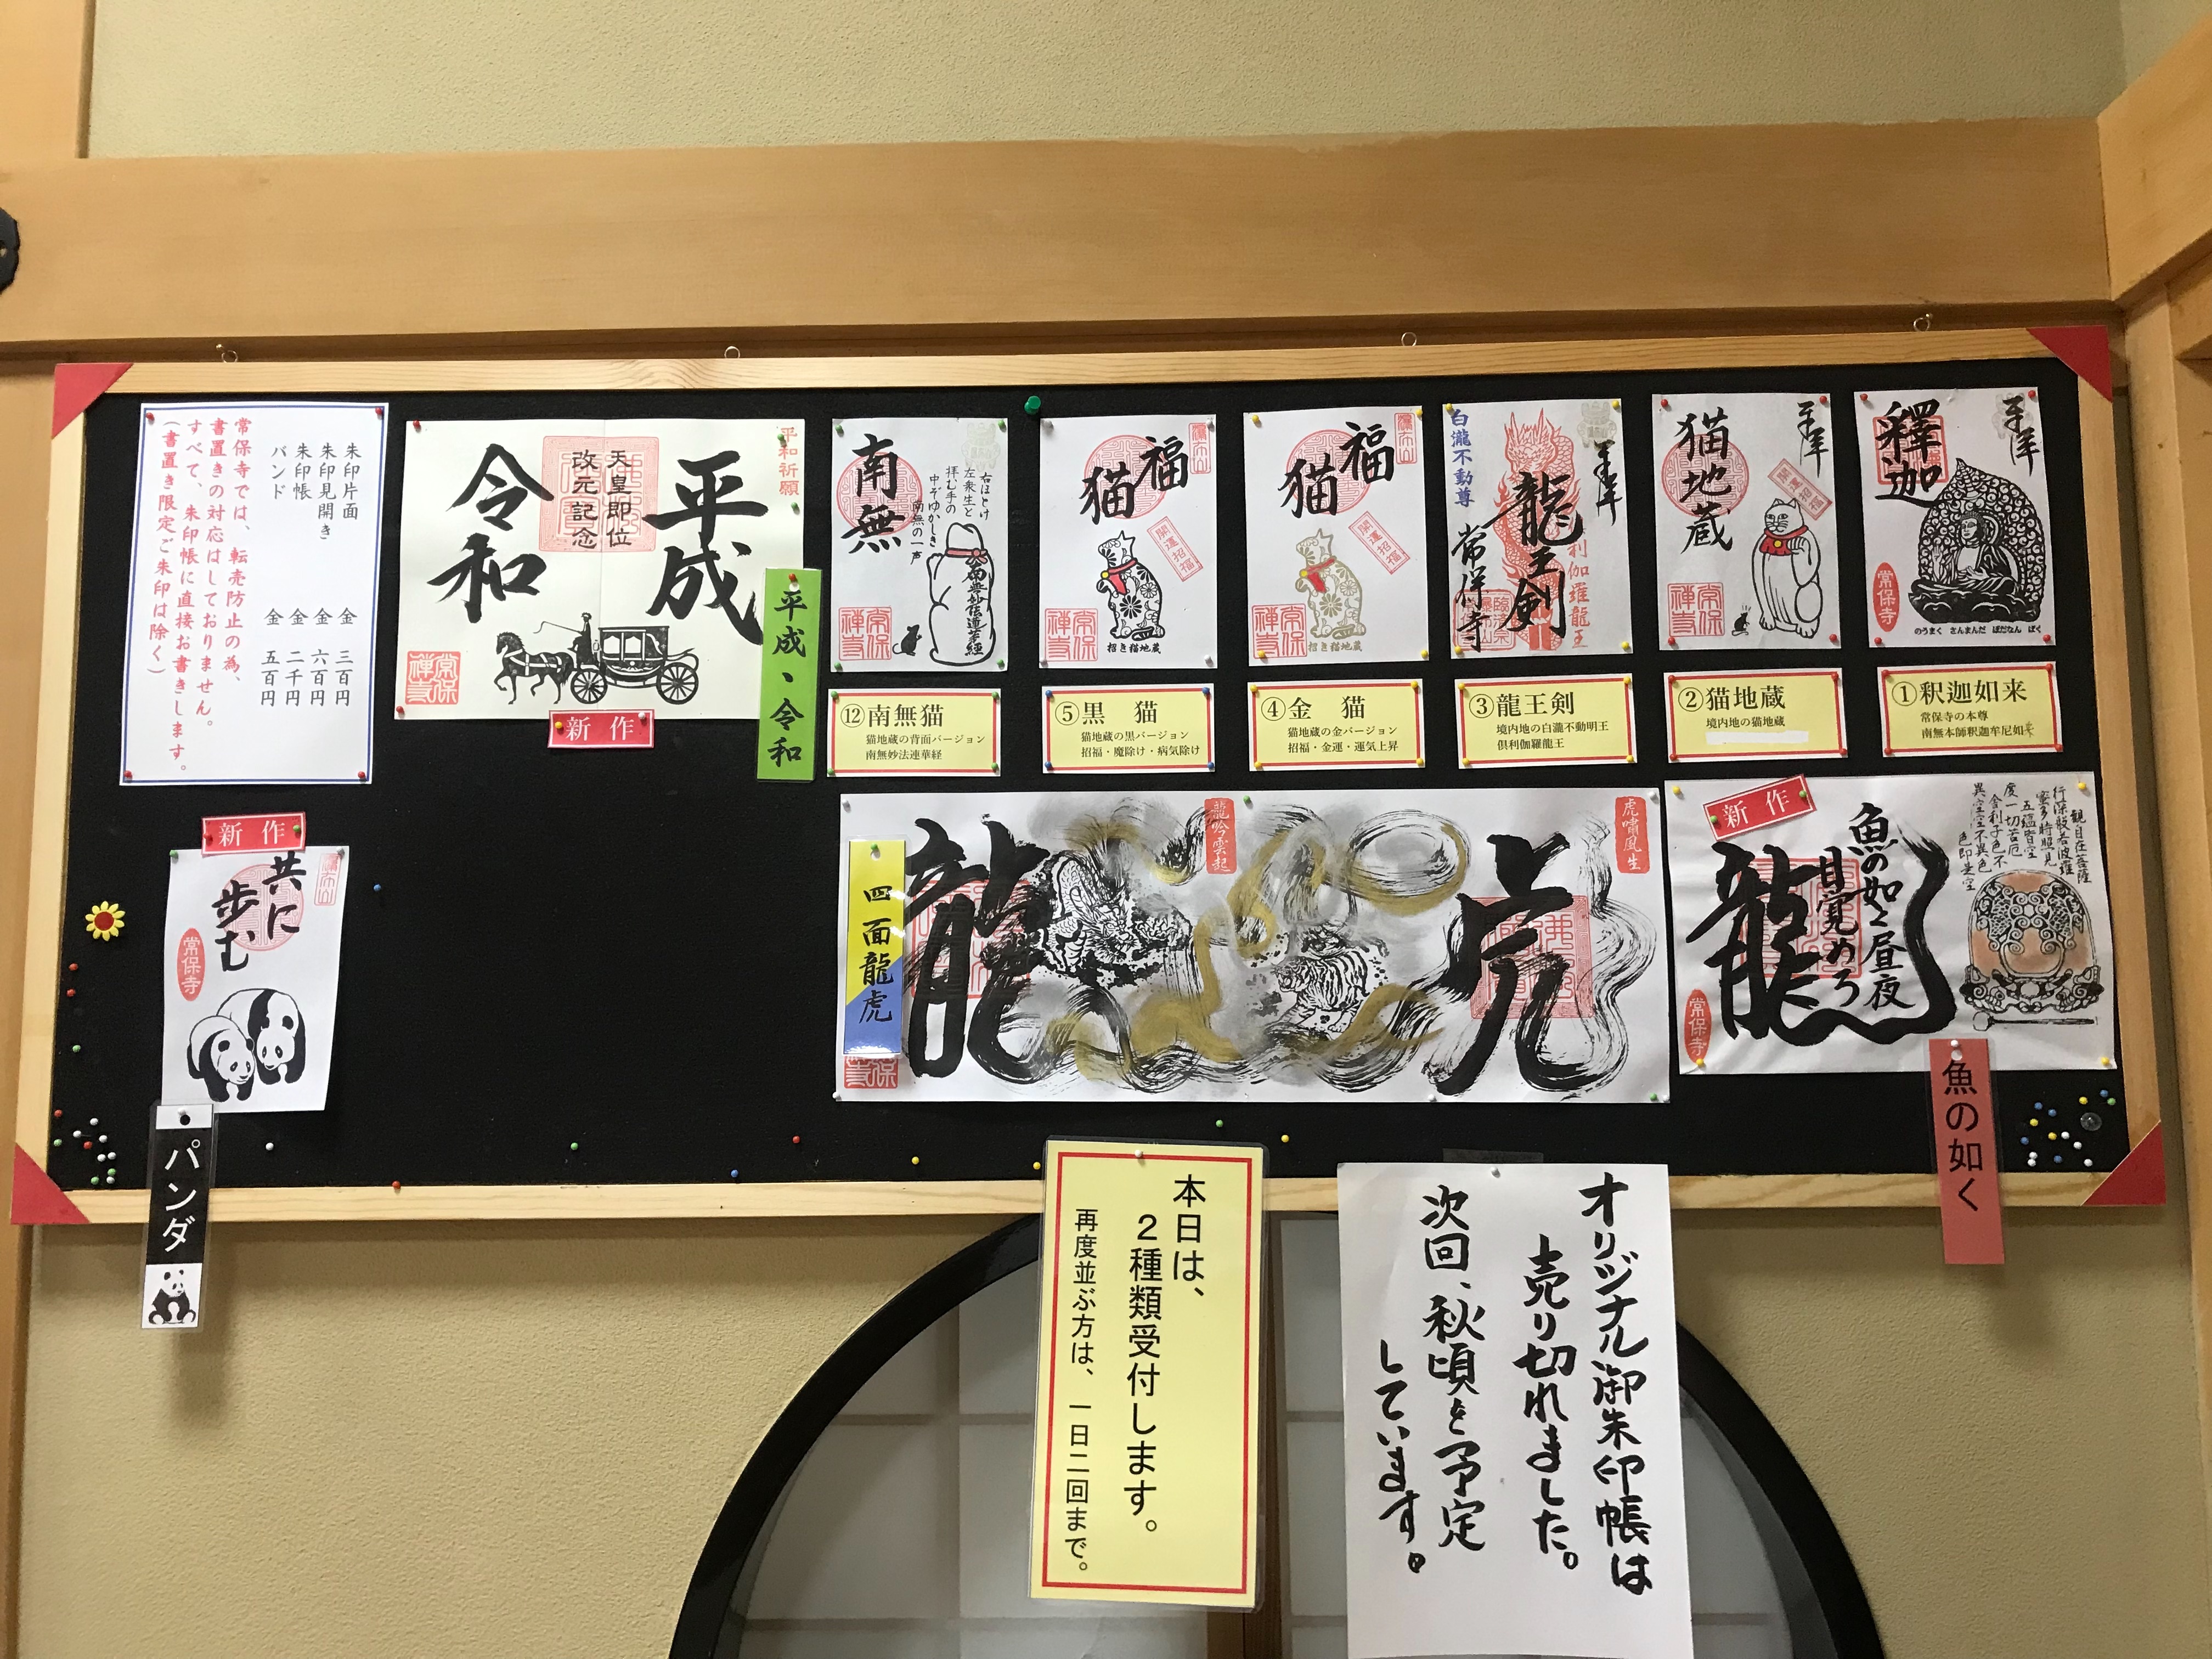 奉拝
釋迦
常保寺
のうまく さんまんだ ぼだなん ばく
①釈迦如来
常保寺の本尊
南無本師釈迦牟尼如来
奉拝
猫地蔵
開運招福
常保禅寺
②猫地蔵
境内地の猫地蔵
奉拝
龍王剣
倶利伽羅龍王
白瀧不動尊
常保寺
③龍王剣
境内地の白瀧不動明王
倶利伽羅龍王
福
猫
開運招福
常保禅寺
招き猫地蔵
④金 猫
猫地蔵の金バージョン
招福・金運・運気上昇
福
猫
開運招福
常保禅寺
招き猫地蔵
⑤黒 猫
猫地蔵の黒バージョン
招福・魔除け・病気除け
右ほとけ
左衆生と
拝む手の
中ぞゆかしき
南無の一声
南無
南無妙法蓮華経
常保禅寺
⑫南無猫
猫地蔵の背面バージョン
南無妙法連華経
平和祈願
平成
天皇即位
改元記念
令和
常保禅寺
新作
平成・令和
朱印片面 金 三百円
朱印見開き 金 六百円
朱印帳 金 二千円
バンド 金 五百円
常保寺では、転売防止の為、
書置きの対応はしておりません。
すべて、朱印帳に直接お書きします。
(書置き限定ご朱印は除く)
観自在菩薩
行深般若波羅
蜜多時照見
五蘊皆空
度一切苦厄
舎利子色不
異空空不異色
色即是空
魚の如く昼夜
目覚めろ
龍
常保寺
新作
魚の如く
虎嘯風生
虎
龍吟雲起
龍
四面龍虎
新作
共に
歩む
常保寺
パンダ
オリジナル御朱印帳は
売り切れました。
次回、秋頃を予定
しています。
本日は、
2種類受付します。
再度並ぶ方は、一日二回まで。